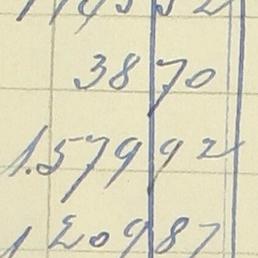 38 70
1.579 92
1209 87